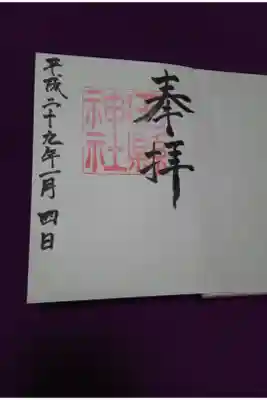 奉拝
神社
平成二十九年一月四日